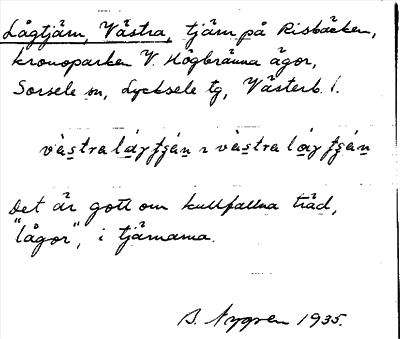 Lågtjärn, Västra, tjärn på Risbäcken,
kronoparken V. Högbränna ägor,
Sorsele sn, Lycksele tg, Västerb. l.
Det är gott om kullfallna träd,
"lågor", i tjärnarna.
B. Nygren 1935.